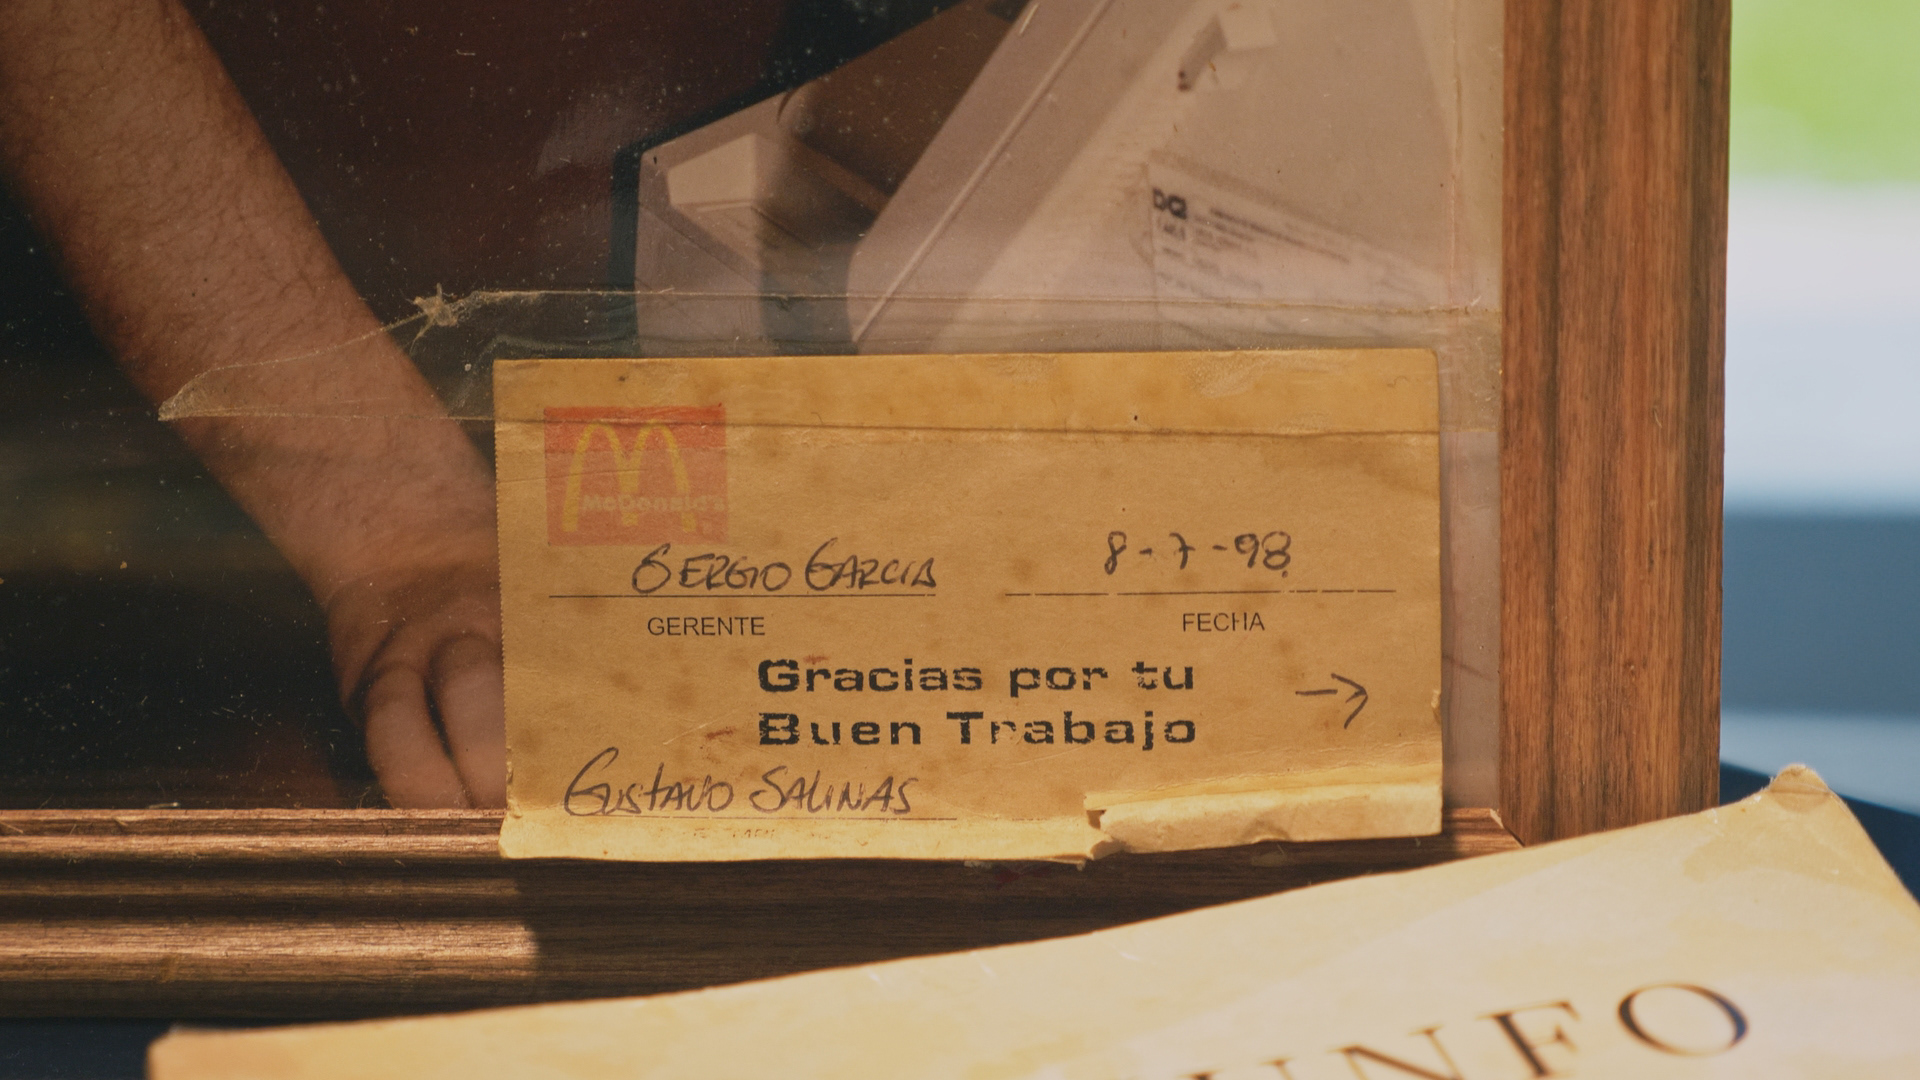 McDonald's
SERGIO GARCIA
8-7-98
GERENTE
FECHA
Gracias por tu
Buen Trabajo
→
Gustavo SALINAS
INFO